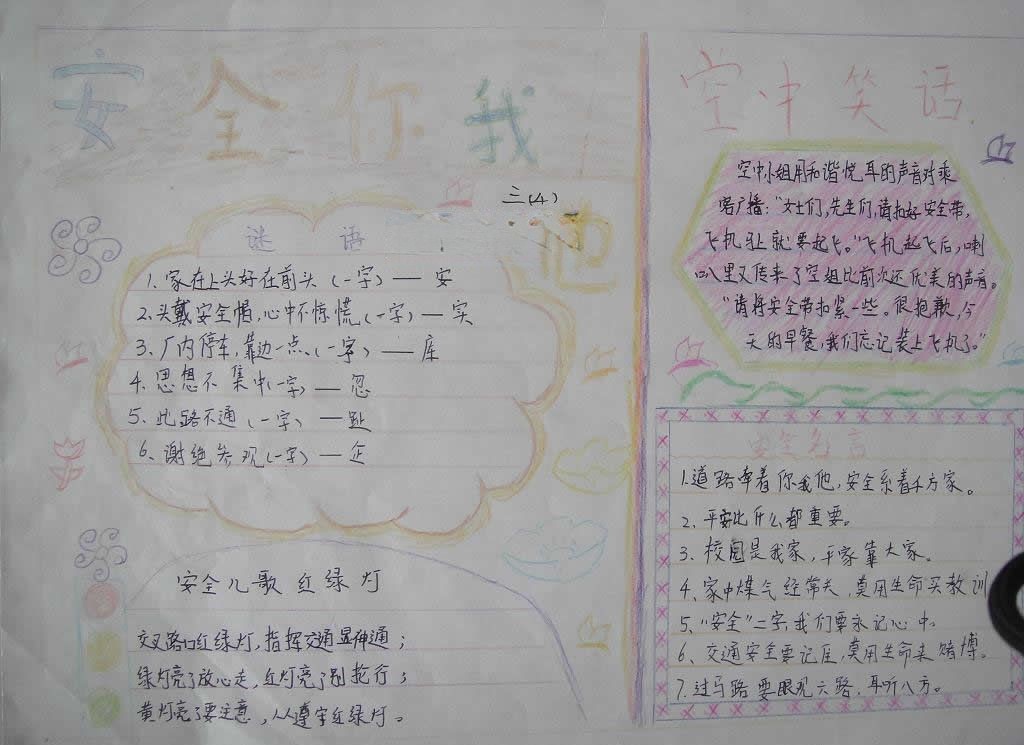 安全你我
他
三(4)
谜语
1.家在上头好在前头(一字)——安
2.头戴安全帽,心中不惊慌(一字)—实
3.厂内停车,靠边一点、(一字)——库
4.思想不集中(一字)—忽
5.此路不通(一字)—趾
6.谢绝参观(一字)—企
安全儿歌 红绿灯
交叉路口红绿灯,指挥交通显神通;
绿灯亮了放心走,红灯亮了别抢行;
黄灯亮了要注意,人人遵守红绿灯。
空中笑话.
空中小姐用和谐悦耳的声音对乘
客广播:“女士们,先生们,请扣好安全带,
飞机马上就要起飞。”飞机起飞后,喇
叭里又传来了空姐比前次还优美的声音。
“请将安全带扣紧一些。很抱歉,今
天的早餐,我们忘记装上飞机了。”
安全名言
1.道路牵着你我他,安全系着千万家。
2.平安比什么都重要。
3.校园是我家,平安靠大家。
4、家中煤气经常关,莫用生命买教训
5、“安全”二字,我们要永记心中。
6、交通安全要记住,莫用生命来赌博。
7.过马路要眼观六路,耳听八方。